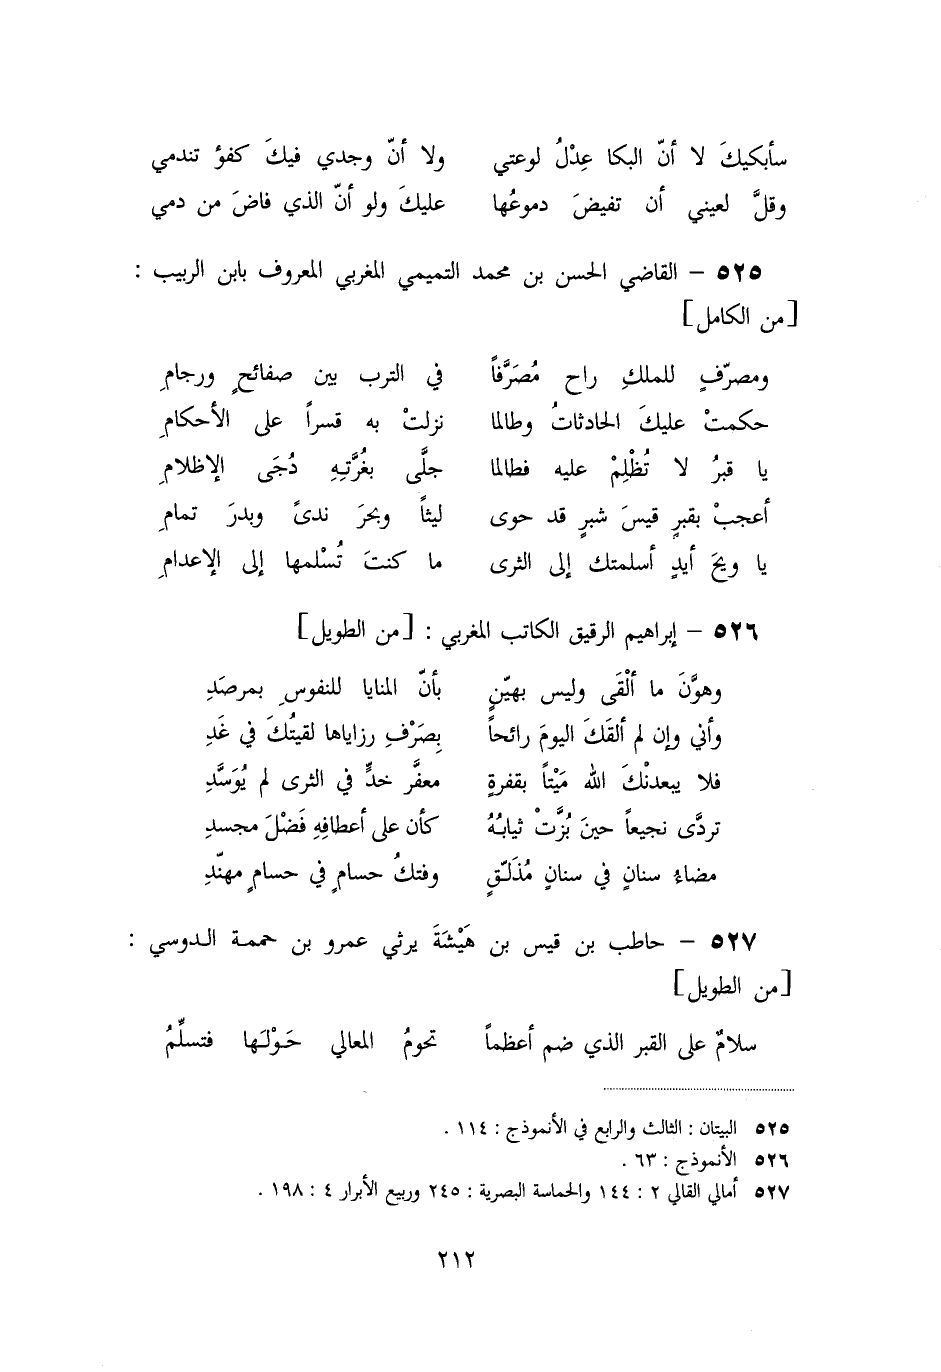 سأبكيكَ لا أنّ البكا عِدْلُ لوعتي ولا أنّ وجدي فيكَ كفؤ تندمي
وقلَّ لعيني أن تفيضَ دموعُها عليكَ ولو أنّ الذي فاضَ من دمي
٥٢٥ – القاضي الحسن بن محمد التميمي المغربي المعروف بابن الربيب :
[من الكامل]
ومصرّفٍ للملكِ راح مُصَرَّفاً في الترب بين صفائحٍ ورجامِ
حكمتْ عليكَ الحادثاتُ وطالما نزلتْ به قسراً على الأحكامِ
يا قبرُ لا تُظْلِمْ عليه فطالما جلَّى بغُرَّتِهِ دُجَى الإظلامِ
أعجبْ بقبرٍ قيسَ شبرٍ قد حوى ليثاً وبحرَ ندىً وبدرَ تمامِ
يا ويحَ أيدٍ أسلمتك إلى الثرى ما كنتَ تُسْلمها إلى الإعدامِ
٥٢٦ – إبراهيم الرقيق الكاتب المغربي : [من الطويل]
وهوَّنَ ما ألْقَى وليس بهيّنٍ بأنّ المنايا للنفوسِ بمرصَدِ
وأني وإن لم ألقَكَ اليومَ رائحاً بِصَرْفِ رزاياها لقيتُكَ في غَدِ
فلا يبعدنْكَ الله مَيْتاً بقفرةٍ معفَّر خدٍّ في الثرى لم يُوَسَّدِ
تردَّى نجيعاً حينَ بُزَّتْ ثيابُهُ كأن على أعطافِهِ فَضْلَ مجسدِ
مضاءُ سنانٍ في سنانٍ مُذَلّقٍ وفتكُ حسامٍ في حسامٍ مهنّدِ
٥٢٧ – حاطب بن قيس بن هَيْشَةَ يرثي عمرو بن حممة الدوسي :
[من الطويل]
سلامٌ على القبر الذي ضم أعظماً تحومُ المعالي حَوْلَها فتسلِّمُ
٥٢٥ البيتان : الثالث والرابع في الأنموذج : ١١٤ .
٥٢٦ الأنموذج : ٦٣ .
٥٢٧ أمالي القالي ٢ : ١٤٤ والحماسة البصرية : ٢٤٥ وربيع الأبرار ٤ : ١٩٨ .
٢١٢